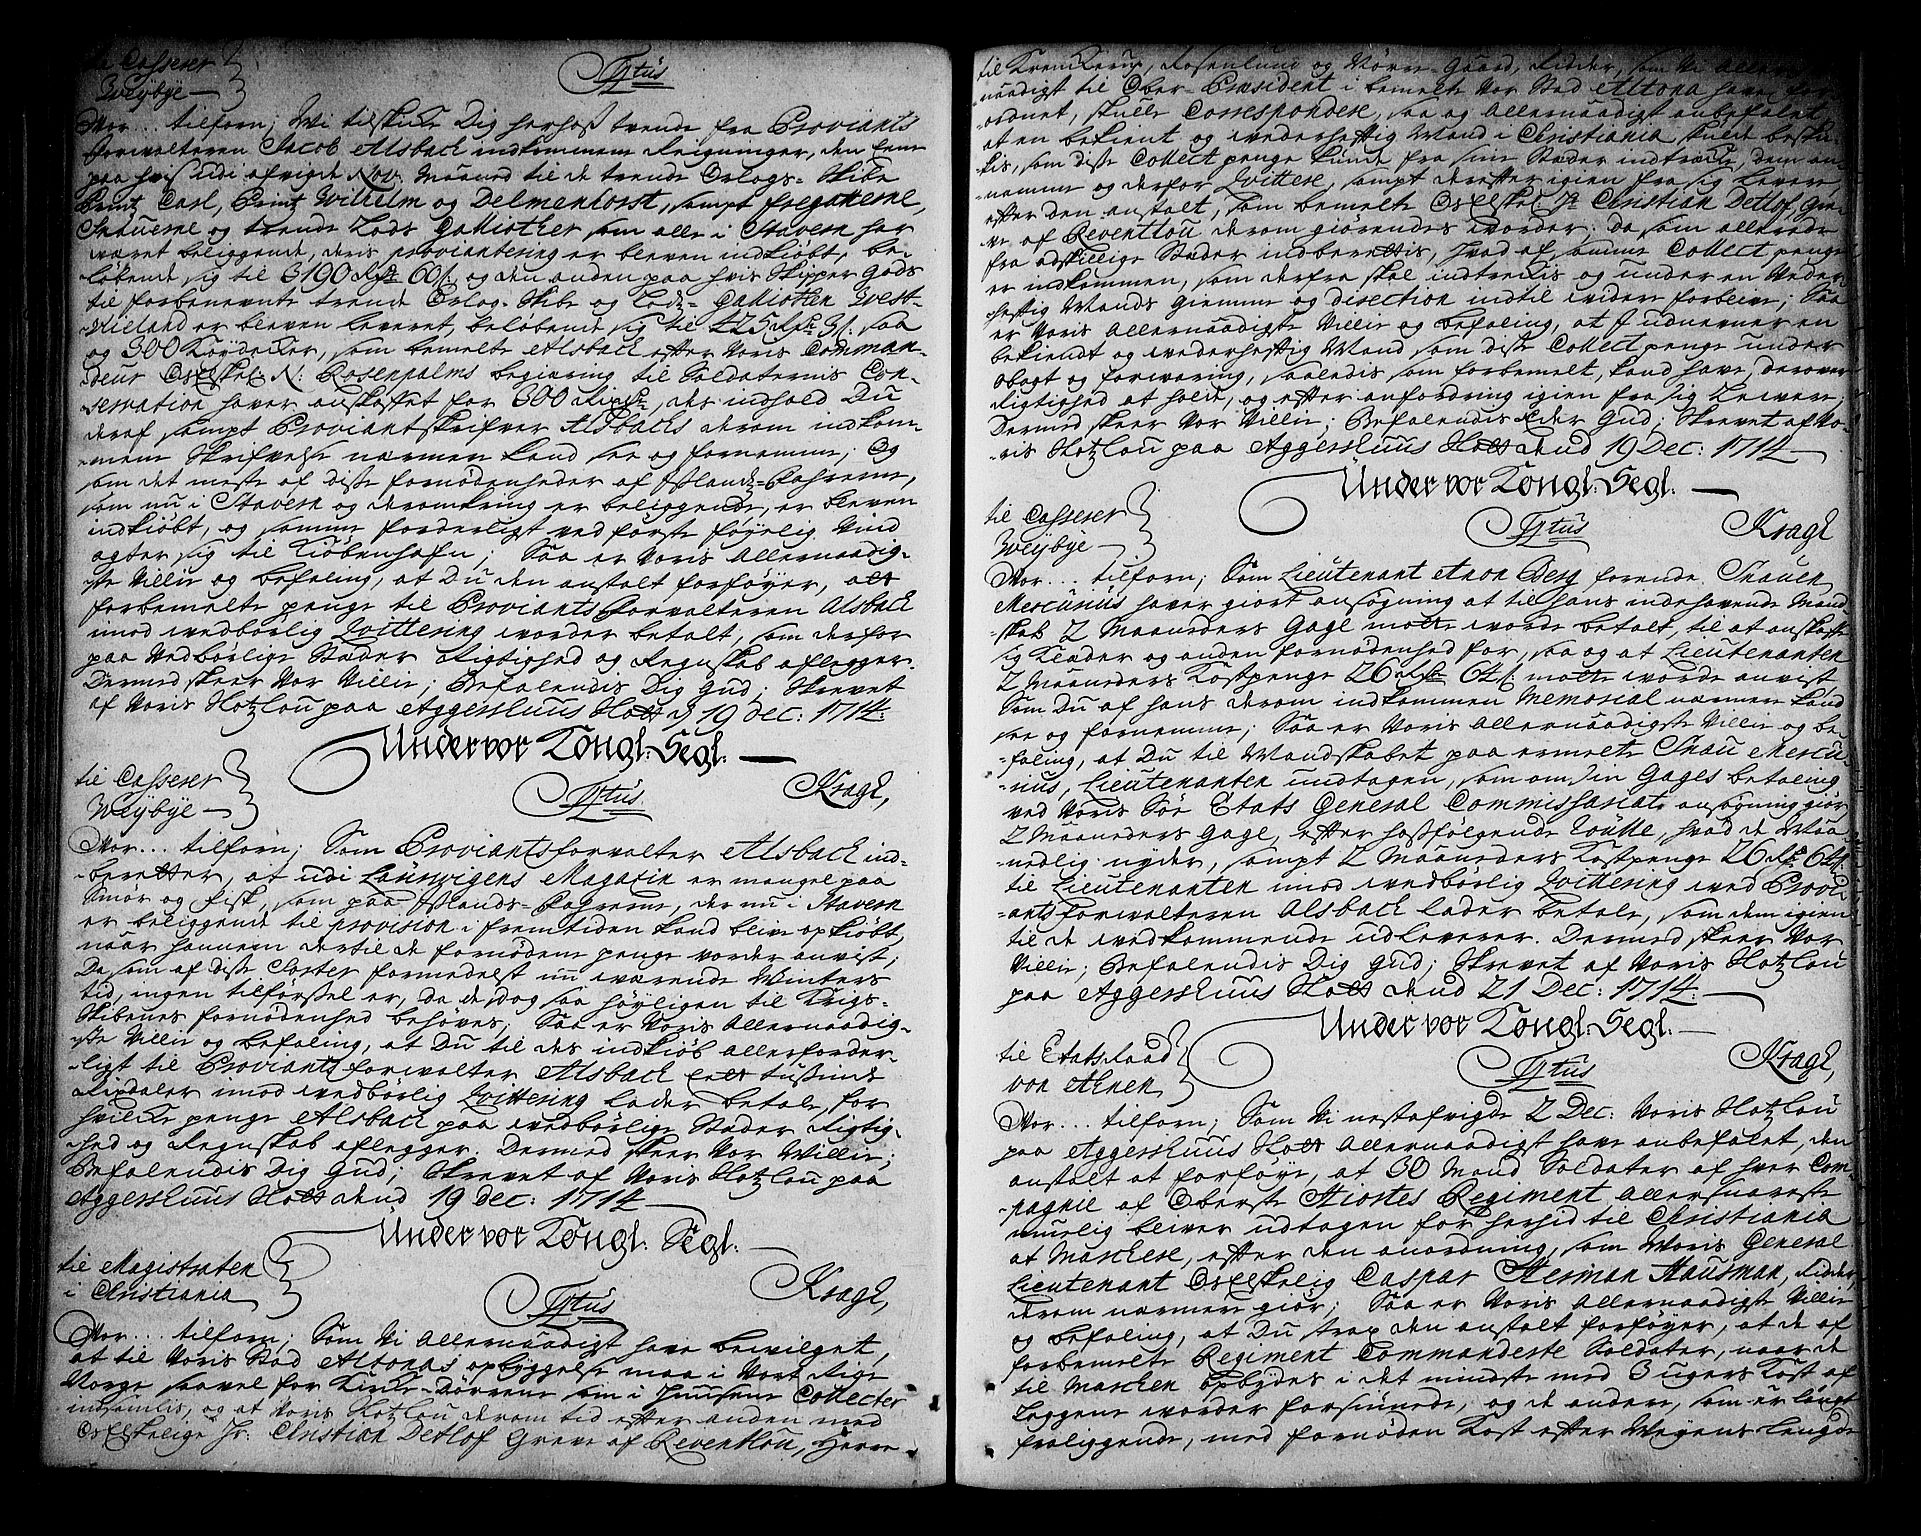 til Casserer
Weybye
Tytus
Vor ... tilforn; Wi tilskicke Dig herhoß trende fra Proviants
forvalteren Jacob Alsbach indkommene Reigninger, den eene
paa hvis udi afvigte Nov: Maaned til de trende Orlogs-Skibe
Printz Carl, Printz Wilhelm og Delmenhorst, sampt fregatterne,
Snauerne og trende Lods Galliother som alle i Stavern har
været beliggende, deris proviantering er bleven indkiøbt, be-
løbende sig til 3190 Rdr 60 s. og den anden paa hvis Skipper Gods
til forbenevnte trende Orlog-Skibe og Lods-Galliothen West-
Wieland er bleven leveret, beløbende sig til 225 Rdr 3 s. saa
og 300 Køydecker, som bemelte Alsbach efter Voris Comman-
deur Os Elskel: N: Rosenpalms begiering til Soldaternis Con-
servation haver anskaffet for 300 Rixdr, des indhold Du
deraf sampt Proviantskrifver Alsbachs derom indkom-
mene Skrifvelse nærmere kand see og fornemme; Og
som det meste af diße fornødenheder af Ißlands-Fahrerne,
som nu i Stavern og deromkring er beliggende, er bleven
indkiøbt, og samme forderligt ved første føyelig Vind
agter sig til Kiøbenhafn; Saa er Voris Allernaadig-
ste Villie og befaling, at Du den anstalt forføyer, at
forbemelte penge til Proviantsforvalteren Alsbach
imod vedbørlig Qvittering vorder betalt, som derfor
paa Vedbørlige Stæder Rigtighed og Regnskab aflegger.
Dermed skeer Vor Villie; Befalendis Dig Gud; Skrevet
af Voris Hotzlou paa Aggershuus Slott d 19 Dec: 1714.
Under vor Kongl. Segl.
Kragh,
til Casserer
Weybye
Tytus
Vor ... tilforn; Som Proviantsforvalter Alsbach ind-
beretter, at udi Laurvigens Magazin er mangel paa
Smør og Fisk, som paa Ißlands-Fahrerne, der nu i Stavern
er beliggende til provision i fremtiden kand blive opkiøbt,
naar hannem dertil de fornødene penge vorder anvist;
Da som af diße Sorter formedelst nu værende Winters
tid, ingen tilførsel er, da de dog saa høyligen til Krigs-
Skibenes fornødenhed behøves; Saa er Voris Allernaadig-
ste Villie og befaling, at Du til des indkiøb allerforder-
ligt til Proviantsforvalter Alsbach eet tusinde
Rixdaler imod vedbørlig Qvittering lader betale, for
hvilke penge Alsbach paa vedbørlige Stæder Rigtig-
hed og Regnskab aflegger. Dermed skeer Vor Villie;
Befalendis Dig Gud; Skrevet af Voris Hotzlou paa
Aggershuus Slott dend 19 Dec: 1714
Under vor Kongl. Segl.
Kragh,
til Magistraten
i Christiania
Tytus
Vor ... tilforn; Som Vi Allernaadigst have bevilget,
at til Voris Stad Altonas opbyggelse maa i Vort Rige
Norge saavel for Kirke-Dørrene som i Huusene Collecter
indsamlis, og at Voris Hotzlou derom tid efter anden med
Os Elskelige Hr: Christian Detlof Greve af Reventlou, Herre
til Krenckerup, Rosenlund og Nørre-Gaard, Ridder, som Vi Aller-
naadigst til Ober-Præsident i bemelte Vor Stad Altona have for-
ordnet, skulle Correspondere, saa og Allernaadigst anbefalet,
at en bekient og vederheftig Mand i Christiania, skulle beskic-
kis, som diße Collect penge kunde fra sine Stæder indtræcke, dem an-
namme og derfor Qvittere, sampt derefter igien fra sig levere,
efter den anstalt, som bemelte Os Elskel: Hr Christian Detlof, Gre-
ve af Reventlou derom giørendes vorder: da som allerede
fra adskillige Stæder indberettis, hvad af samme Collect penge
er indkommen, som derfra skal indtreckis og under en Veder-
heftig Mands giemme og direction indtil videre forblive; Saa
er Voris Allernaadigste Villie og befaling, at I udnevner en
bekiendt og vederheftig Mand, som diße Collect penge under
obagt og forvaring, saaledis som forbemelt, kand have, derover
Rigtighed at holde, og efter anfordring igien fra sig levere;
Dermed skeer Vor Villie; Befalendis Eder Gud; Skrevet af Vo-
ris Hotzlou paa Aggershuus Slott dend 19 Dec: 1714
Under vor Kongl. Segl.
Kragh
til Casserer
Weybye
Tytus
Vor ... tilforn; Som Lieutenant Aron Berg førende Snauen
Mercurius haver giort ansøgning at til hans indehavende Mand-
skab 2 Maaneders Gage motte vorde betalt, til at anskaffe
sig Klæder og anden fornødenhed for, saa og at Lieutenanten
2 Maaneders Kostpenge 26 Rdr 64 s. motte vorde anvist
Som Du af hans derom indkommen Memorial nærmere kand
see og fornemme; Saa er Voris Allernaadigste Villie og be-
faling, at Du til Mandskabet paa ermelte Snau Mercu-
rius, Lieutenanten undtagen, som om sin Gages betaling
ved Voris Søe Etats General Commissariat ansøgning giør
2 Maaneders Gage, efter hoßfølgende Roulle, hvad de Maa-
nedlig nyder, sampt 2 Maaneders Kostpenge 26 Rdr 64 s.
til Lieutenanten imod vedbørlig Qvittering ved Provi-
antsforvalteren Alsbach lader betale, som dem igien
til de vedkommende udleverer. Dermed skeer Vor
Villie; Befalendis Dig Gud; Skrevet af Voris Hotzlou
paa Aggershuus Slott dend 21 Dec: 1714.
Under vor Kongl. Segl.
Kragh,
til Etatsraad
von Ahnen
Tytus
Vor ... tilforn; Som Vi nestafvigte 2 Dec: Voris Hotzlou
paa Aggershuus Slott Allernaadigst have anbefalet, den
anstalt at forføye, at 30 Mand Soldater af hver Com-
pagnie af Oberste Hiortes Regiment allersnareste
muelig bliver udtagen for herhid til Christiania
at Marchere, efter den anordning, som Voris General
Lieutenant Os Elskelig Caspar Herman Hausman, Ridder,
derom nærmere giør; Saa er Voris Allernaadigste Villie
og befaling, at Du strax den anstalt forføyer, at de af
forbemelte Regiment Commanderte Soldater, naar de
til Marchen opbydes i det mindste med 3 ugers Kost af
Leggene vorder forsiunede, og de andere, som er længst
fraliggende, med fornøden Kost efter Weyens Lengde